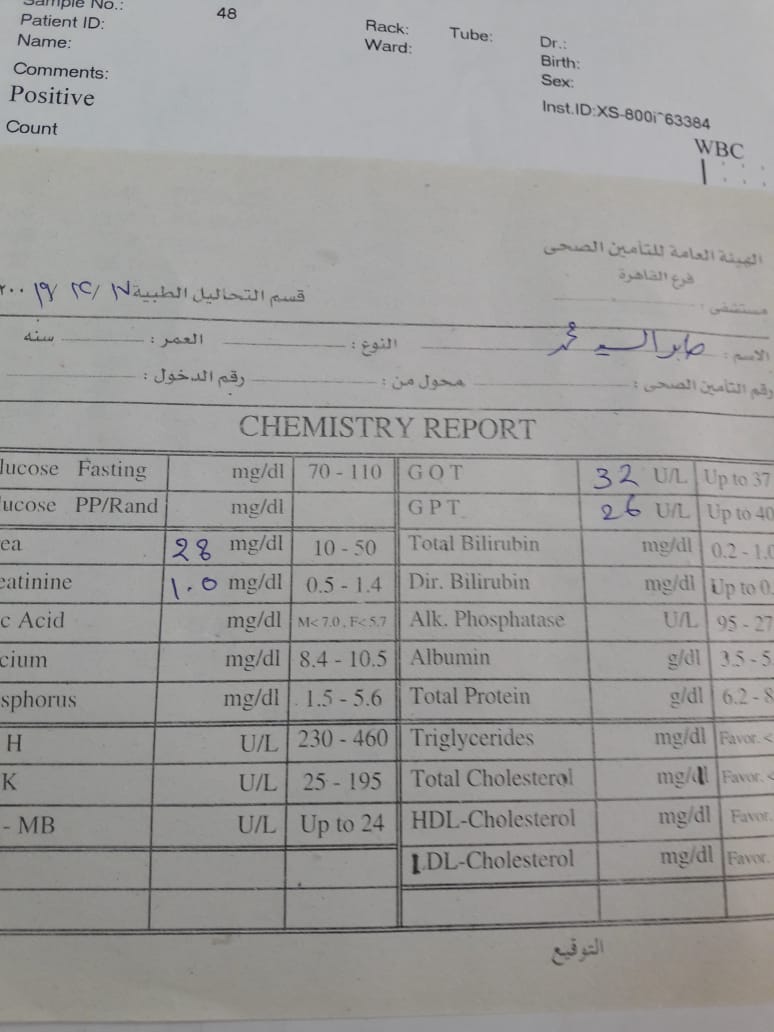 Sample No.:
Patient ID: 48 Rack: Tube: Dr.:
Name: Ward: Birth:
Comments: Sex:
Positive Inst.ID:XS-800i^63384
Count WBC
الهيئة العامة للتأمين الصحى
فرع القاهرة
قسم التحاليل الطبية
مستشفى :
الاسم : صابر السيد محمد النوع : العمر : سنه
رقم التأمين الصحى : محول من : رقم الدخول :
CHEMISTRY REPORT
lucose Fasting mg/dl 70 - 110 G O T 32 U/L Up to 37
ucose PP/Rand mg/dl G P T 26 U/L Up to 40
ea 28 mg/dl 10 - 50 Total Bilirubin mg/dl 0.2 - 1.0
eatinine 1.0 mg/dl 0.5 - 1.4 Dir. Bilirubin mg/dl Up to 0.
c Acid mg/dl M< 7.0 , F< 5.7 Alk. Phosphatase U/L 95 - 27
cium mg/dl 8.4 - 10.5 Albumin g/dl 3.5 - 5.
sphorus mg/dl 1.5 - 5.6 Total Protein g/dl 6.2 - 8
H U/L 230 - 460 Triglycerides mg/dl Favor. <
K U/L 25 - 195 Total Cholesterol mg/dl Favor. <
- MB U/L Up to 24 HDL-Cholesterol mg/dl Favor.
LDL-Cholesterol mg/dl Favor.
التوقيع